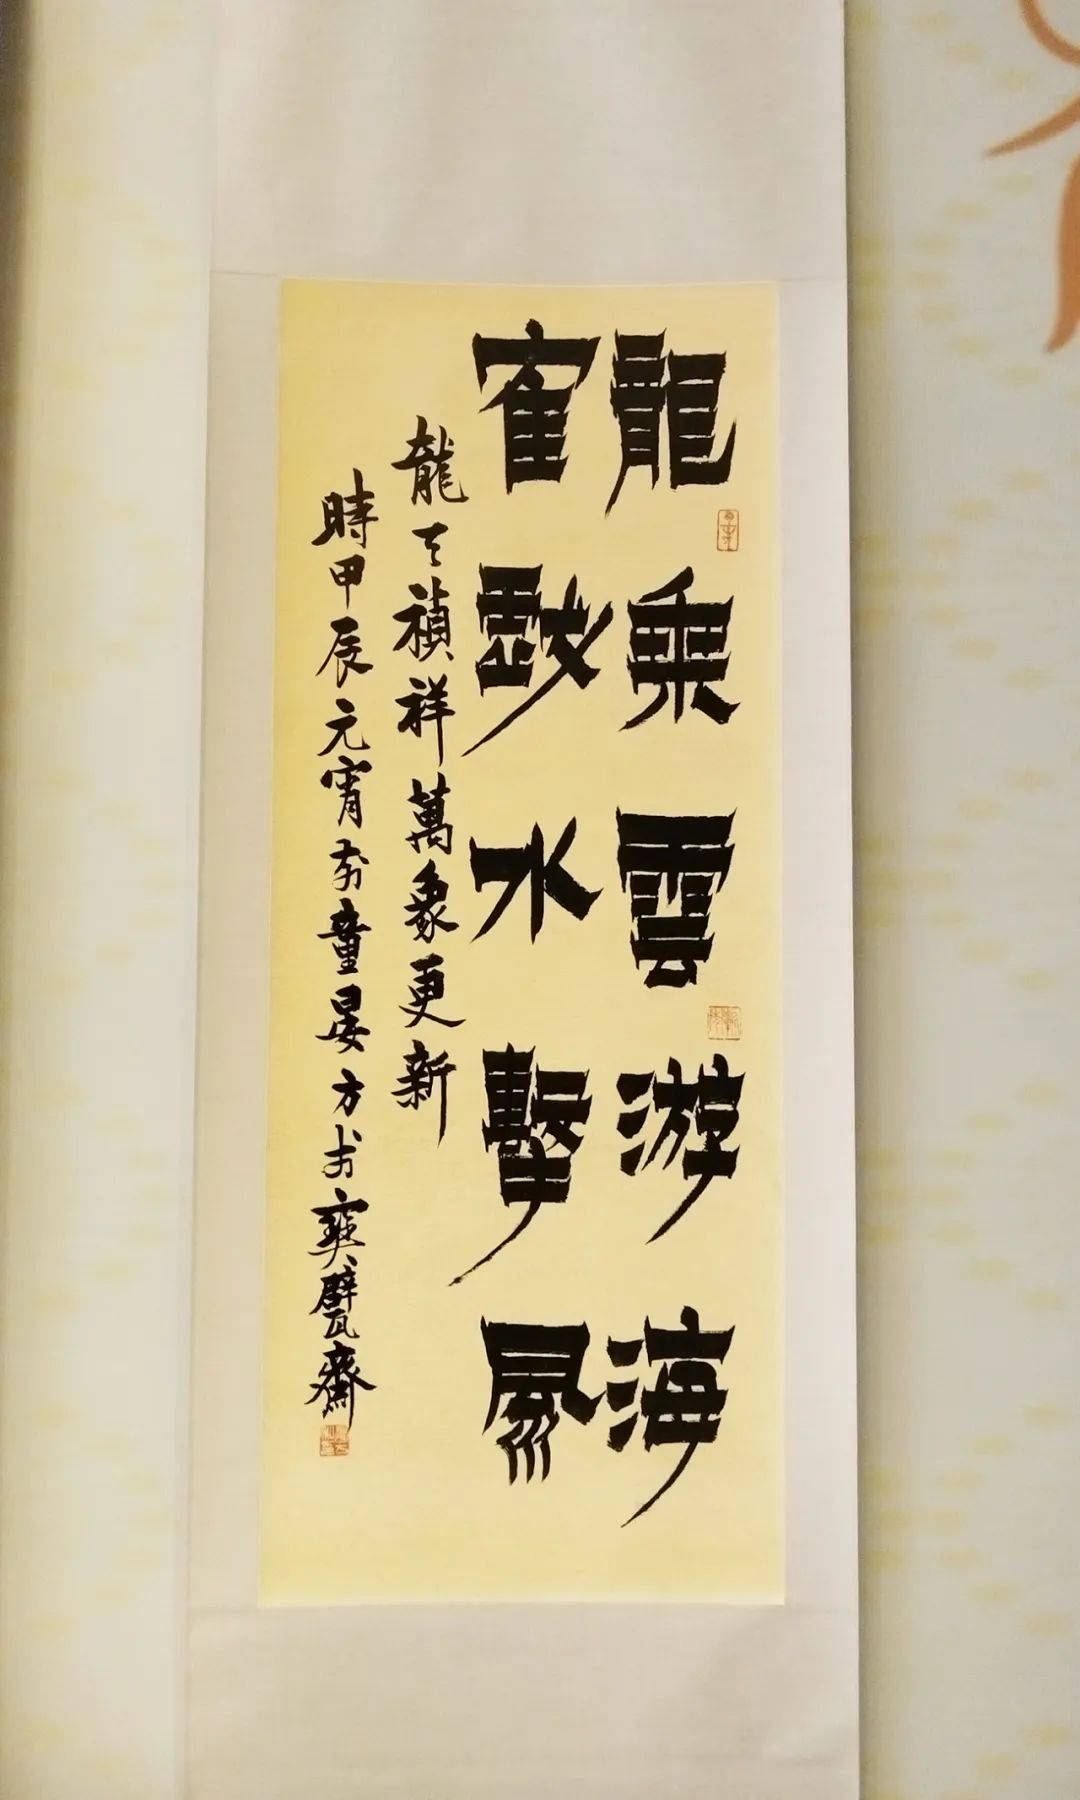 龍乘雲游海
隺水擊風
龍禎祥萬象更新
時甲辰元宵前童晏方書寶甓齋